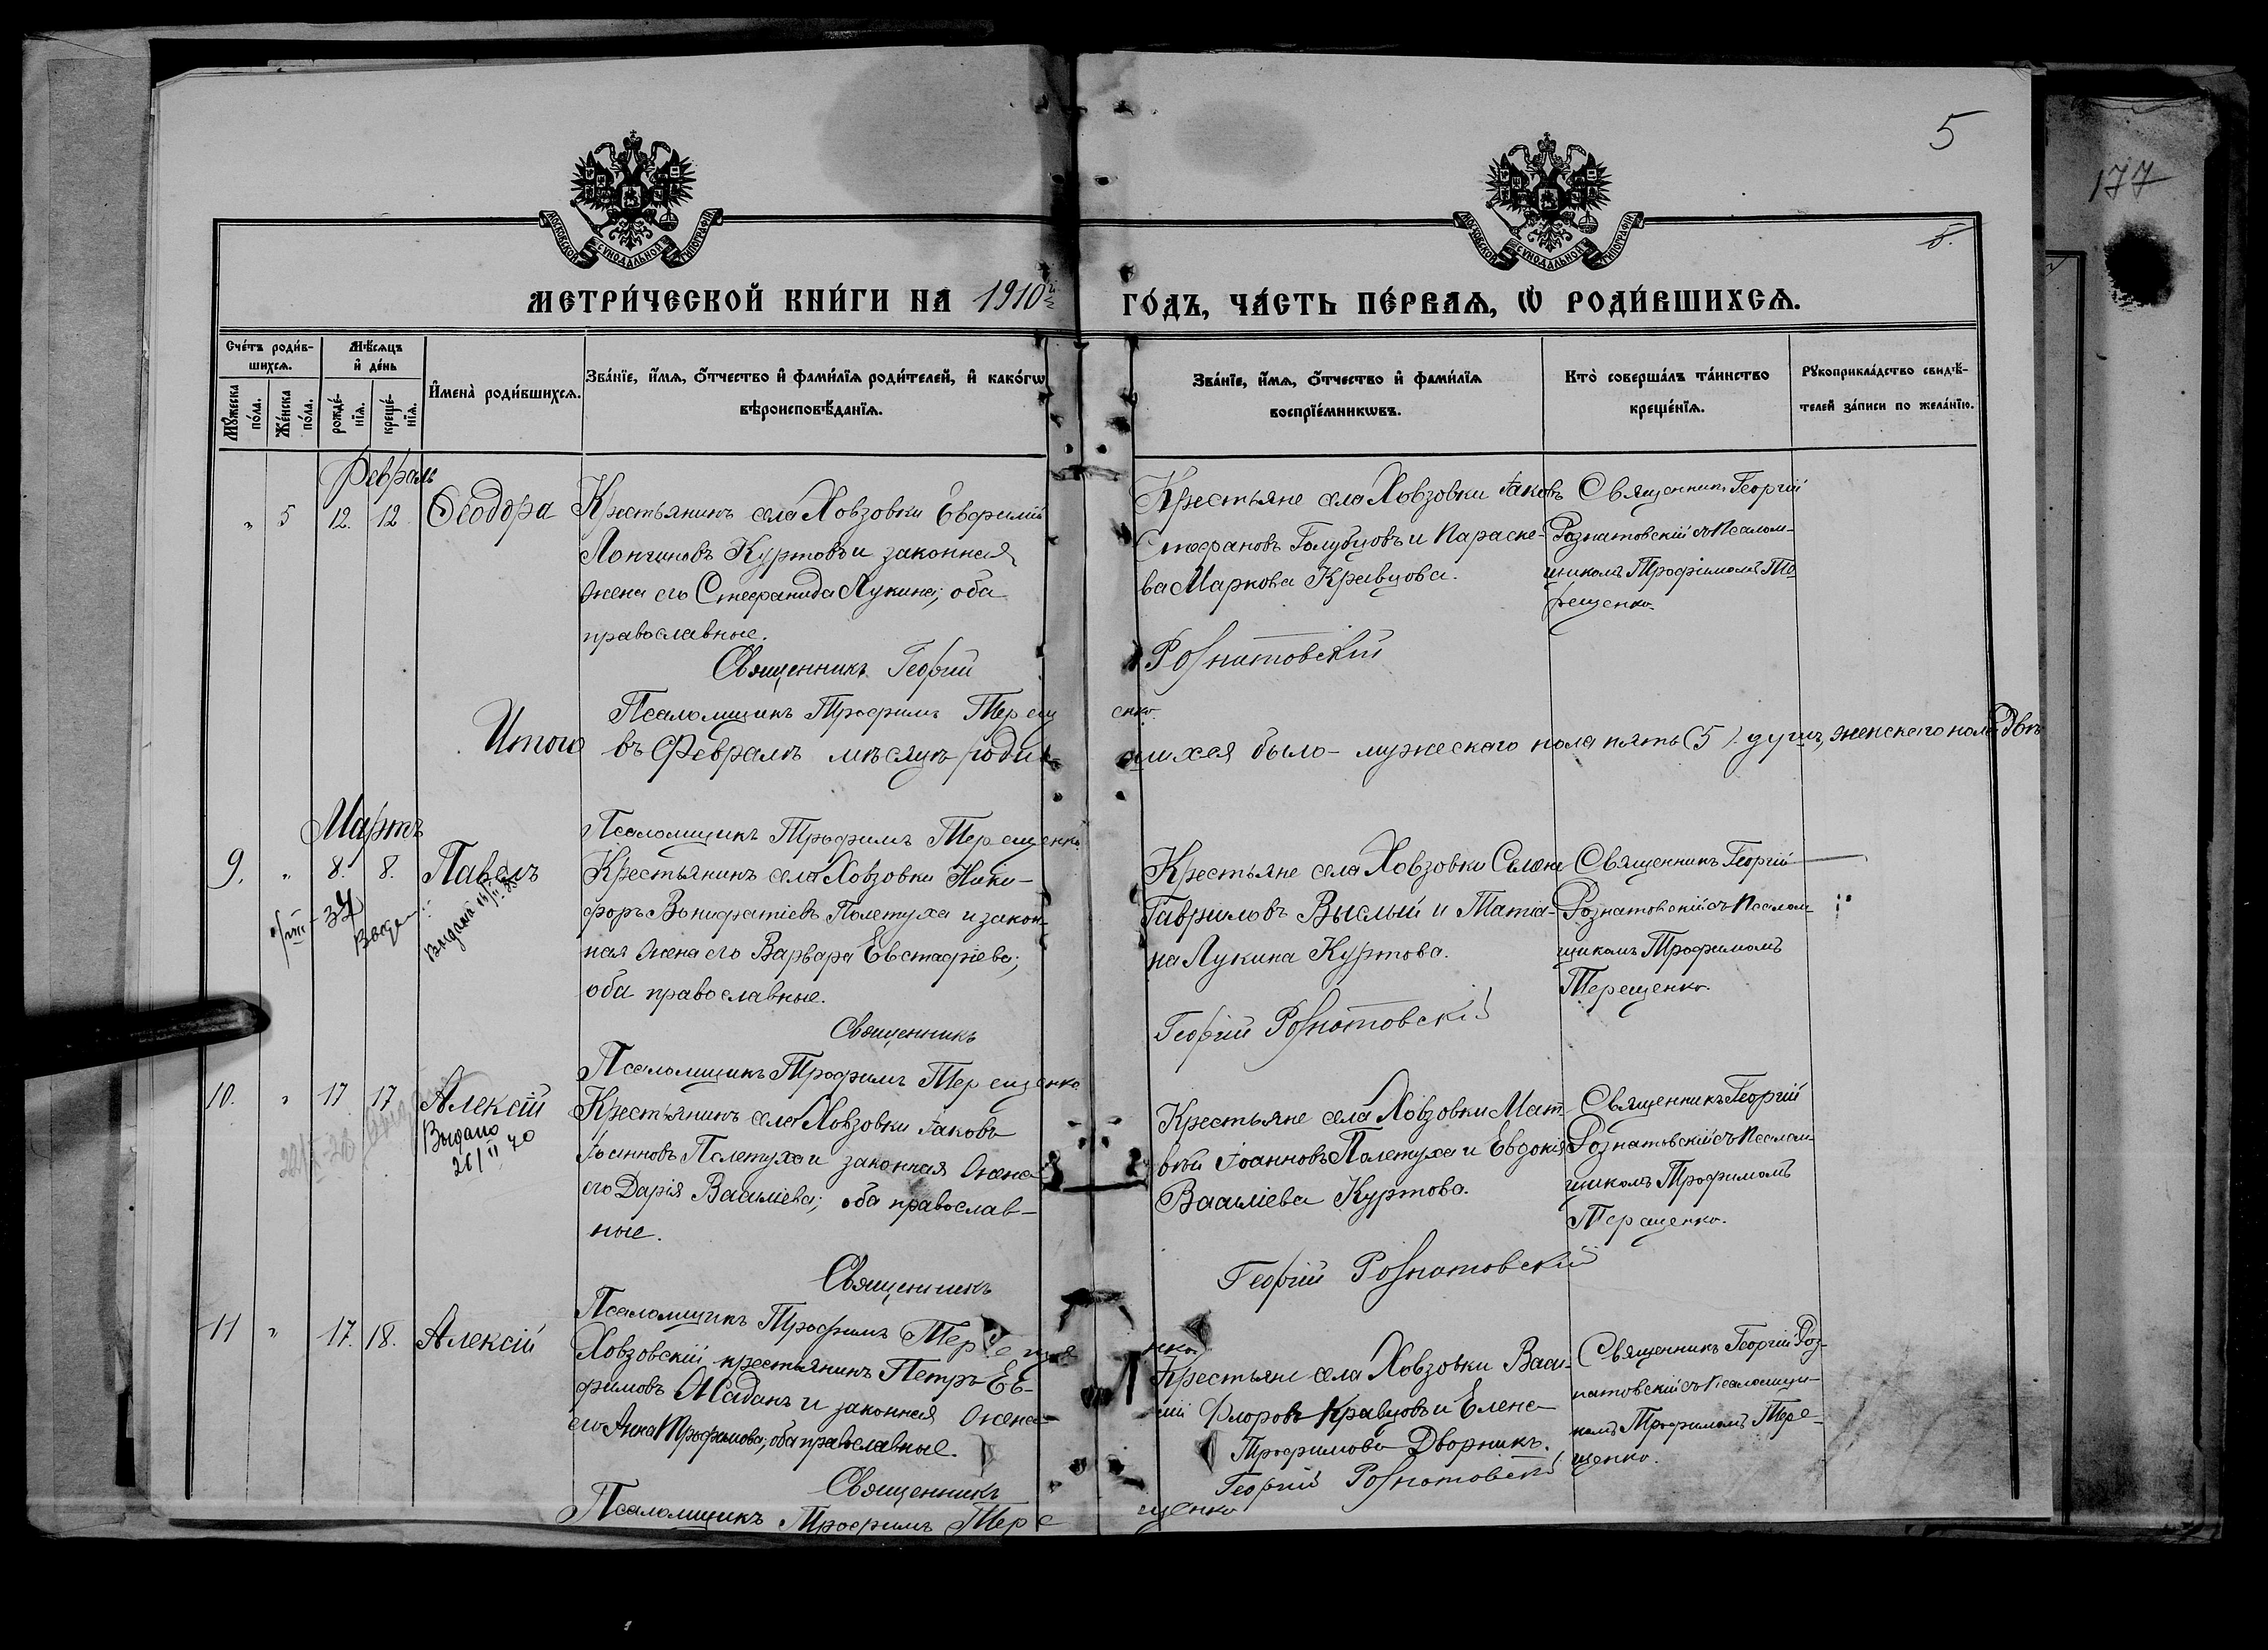 5
177
5.
МОСКОВСКОЙ СУНОДАЛЬНОЙ ТИПОГРАФІИ
МОСКОВСКОЙ СУНОДАЛЬНОЙ ТИПОГРАФІИ
МЕТРИ́ЧЕСКОЙ КНИ́ГИ НА 1910й
ГО́ДЪ, ЧА́СТЬ ПЕ́РВАѦ, Ѡ РОДИ́ВШИХСѦ.
Сче́тъ роди́в-
шихсѧ.
Мѣ́сѧцъ
и҆ де́нь
Мꙋ́жеска
по́ла.
Же́нска
по́ла.
рожде́-
нїѧ.
креще́-
нїѧ.
И҆мена̀ роди́вшихсѧ.
Зва́нїе, и҆́мѧ, ѻ҆́тчество и҆ фами́лїѧ роди́телей, и҆ како́гѡ
вѣроисповѣ́данїѧ.
Зва́нїе, и҆́мѧ, ѻ҆́тчество и҆ фами́лїѧ
воспрїе́мникѡвъ.
Кто̀ соверша́лъ та́инство
креще́нїѧ.
Рꙋкоприкла́дство свидѣ́-
телей за́писи по жела́нїю.
Февраль
" 5 12. 12 Ѳеодора
Крестьянинъ села Ховзовки Евфимій
Лонгиновъ Куртовъ и законная
жена его Стефанида Лукина; оба
православные.
Священникъ Георгій
Псаломщикъ Трофимъ Терещ
Крестьяне села Ховзовки Іаковъ
Стефановъ Голубцовъ и Параске-
ва Маркова Кравцова.
Рознатовскій
енко.
Священникъ Георгій
Рознатовскій съ Псалом-
щикомъ Трофимомъ Те-
рещенко.
Итого въ Февралѣ мѣсяцѣ родив
шихся было - мужескаго пола пять (5) душъ, женскаго пола двѣ
Псаломщикъ Трофимъ Терещенко
Мартъ
9. " 8. 8. Павелъ
Выданa
Крестьянинъ села Ховзовки Ники-
форъ Вонифатіевъ Полетуха и закон-
ная жена его Варвара Евстафіева;
оба православные.
Священникъ
Псаломщикъ Трофимъ Терещенко
Крестьяне села Ховзовки Семенъ
Гавриловъ Вислый и Татіа-
на Лукина Куртова.
Георгій Рознатовскій
Священникъ Георгій
Рознатовскій съ Псалом-
щикомъ Трофимомъ
Терещенко.
10. " 17 17 Алексій
Выдано
26/II 40
Крестьянинъ села Ховзовки Іаковъ
Іоанновъ Полетуха и законная жена
его Дарія Василіева; оба православ-
ные.
Священникъ
Псаломщикъ Трофимъ Тереще
Крестьяне села Ховзовки Мат-
вѣй Іоанновъ Полетуха и Евдокія
Василіева Куртова.
Георгій Рознатовскій
нко
Священникъ Георгій
Рознатовскій съ Псалом-
щикомъ Трофимомъ
Терещенко.
11 " 17. 18. Алексій
Ховзовскій крестьянинъ Петръ Ев-
фимовъ Маданъ и законная жена
его Анна Трофимова; оба православные.
Священникъ
Псаломщикъ Трофимъ Тере
Крестьяне села Ховзовки Васи-
лій Флоровъ Кравцовъ и Елена
Трофимова Дворникъ.
Георгій Рознатовскій
щенко
Священникъ Георгій Роз-
натовскій съ Псаломщи-
комъ Трофимомъ Тере-
щенко.